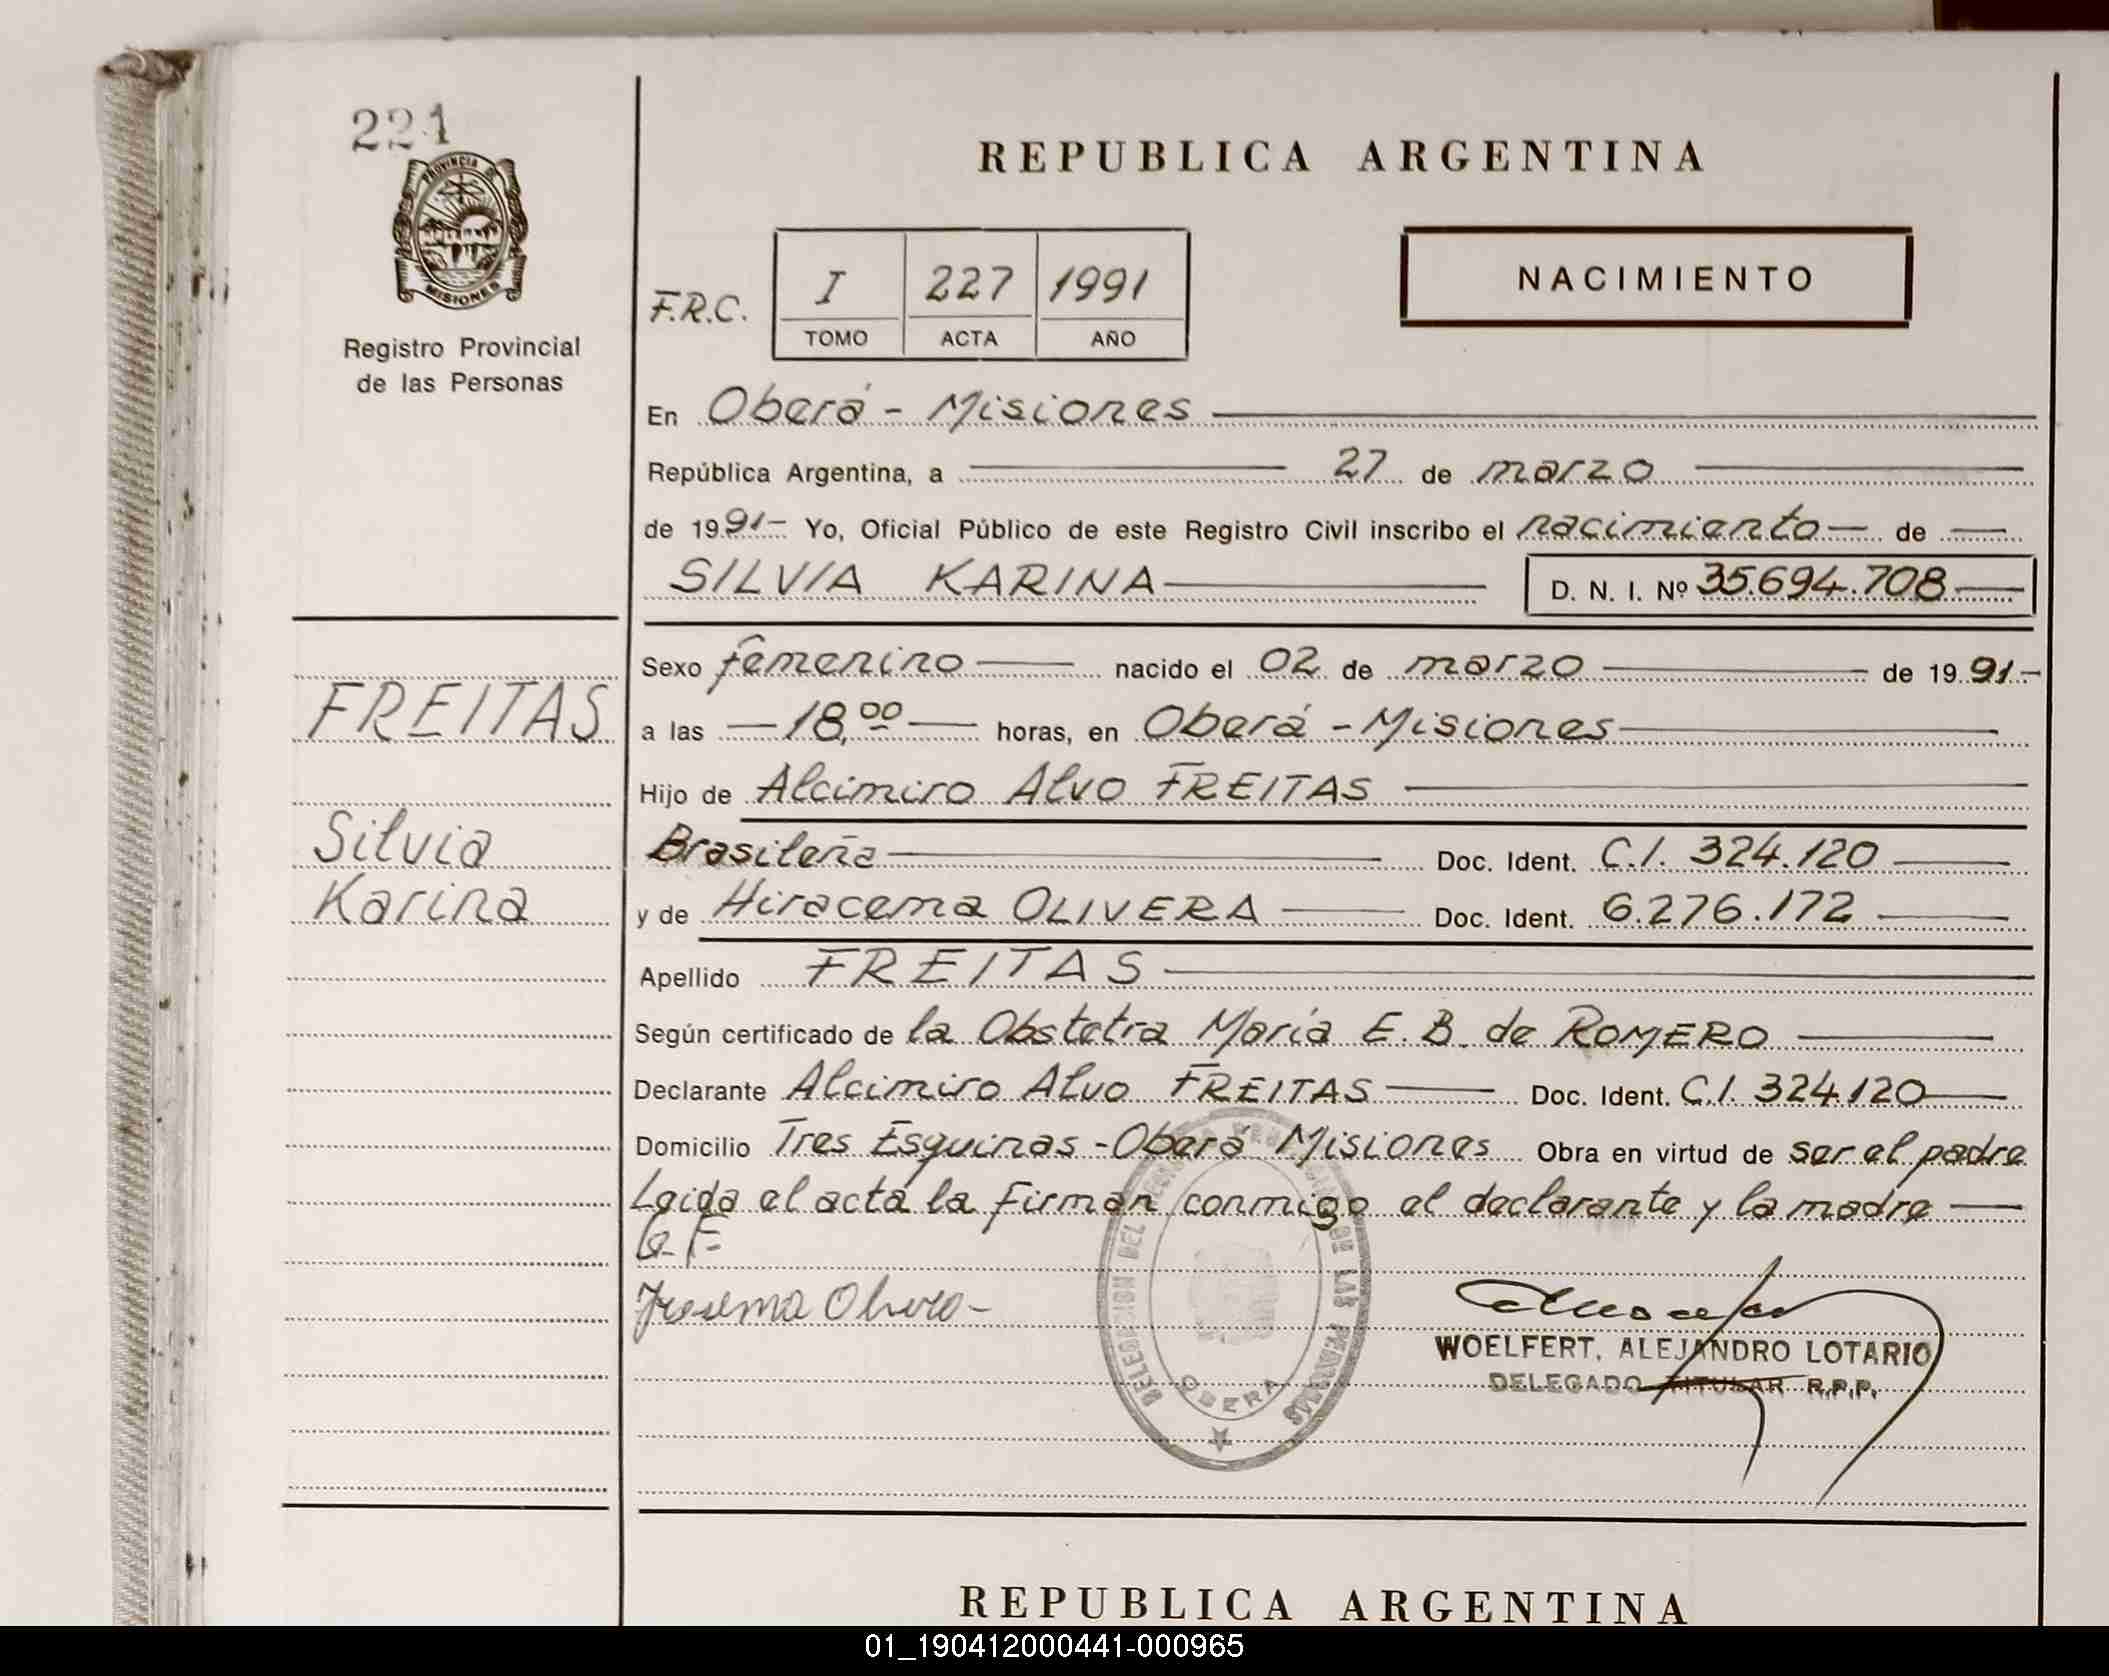 221
PROVINCIA DE
MISIONES
Registro Provincial
de las Personas
FREITAS
Silvia
Karina
REPUBLICA ARGENTINA
F.R.C.
I 227 1991
TOMO ACTA AÑO
NACIMIENTO
En Oberá - Misiones
República Argentina, a 27 de marzo
de 1991- Yo, Oficial Público de este Registro Civil inscribo el nacimiento de
SILVIA KARINA D. N. I. Nº 35.694.708
Sexo femenino nacido el 02 de marzo de 1991-
a las 18,00 horas, en Oberá - Misiones
Hijo de Alcimiro Alvo FREITAS
Brasileña Doc. Ident. C.I. 324.120
y de Hiracema OLIVERA Doc. Ident. 6.276.172
Apellido FREITAS
Según certificado de la Obstetra María E. B. de ROMERO
Declarante Alcimiro Alvo FREITAS Doc. Ident. C.I. 324.120
Domicilio Tres Esquinas - Oberá Misiones Obra en virtud de ser el padre
Leida el acta la firman conmigo el declarante y la madre
DELEGACION DEL DE LAS PERSONAS
OBERA
WOELFERT, ALEJANDRO LOTARIO
DELEGADO TITULAR R.P.P.
REPUBLICA ARGENTINA
01_190412000441-000965